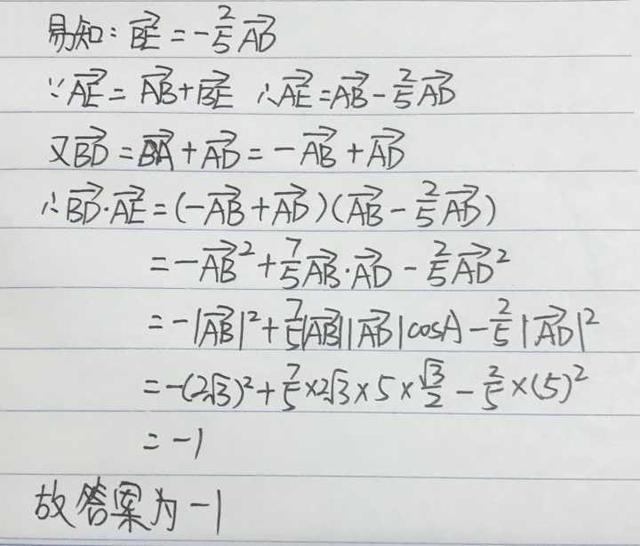 易知: $\overrightarrow{BE} = -\frac{2}{5}\overrightarrow{AD}$
∵$\overrightarrow{AE} = \overrightarrow{AB} + \overrightarrow{BE}$ ∴$\overrightarrow{AE} = \overrightarrow{AB} - \frac{2}{5}\overrightarrow{AD}$
又$\overrightarrow{BD} = \overrightarrow{BA} + \overrightarrow{AD} = -\overrightarrow{AB} + \overrightarrow{AD}$
∴$\overrightarrow{BD} \cdot \overrightarrow{AE} = (-\overrightarrow{AB} + \overrightarrow{AD})(\overrightarrow{AB} - \frac{2}{5}\overrightarrow{AD})$
$= -\overrightarrow{AB}^2 + \frac{7}{5}\overrightarrow{AB} \cdot \overrightarrow{AD} - \frac{2}{5}\overrightarrow{AD}^2$
$= -|\overrightarrow{AB}|^2 + \frac{7}{5}|\overrightarrow{AB}||\overrightarrow{AD}|\cos A - \frac{2}{5}|\overrightarrow{AD}|^2$
$= -(2\sqrt{3})^2 + \frac{7}{5} \times 2\sqrt{3} \times 5 \times \frac{\sqrt{3}}{2} - \frac{2}{5} \times (5)^2$
$= -1$
故答案为-1